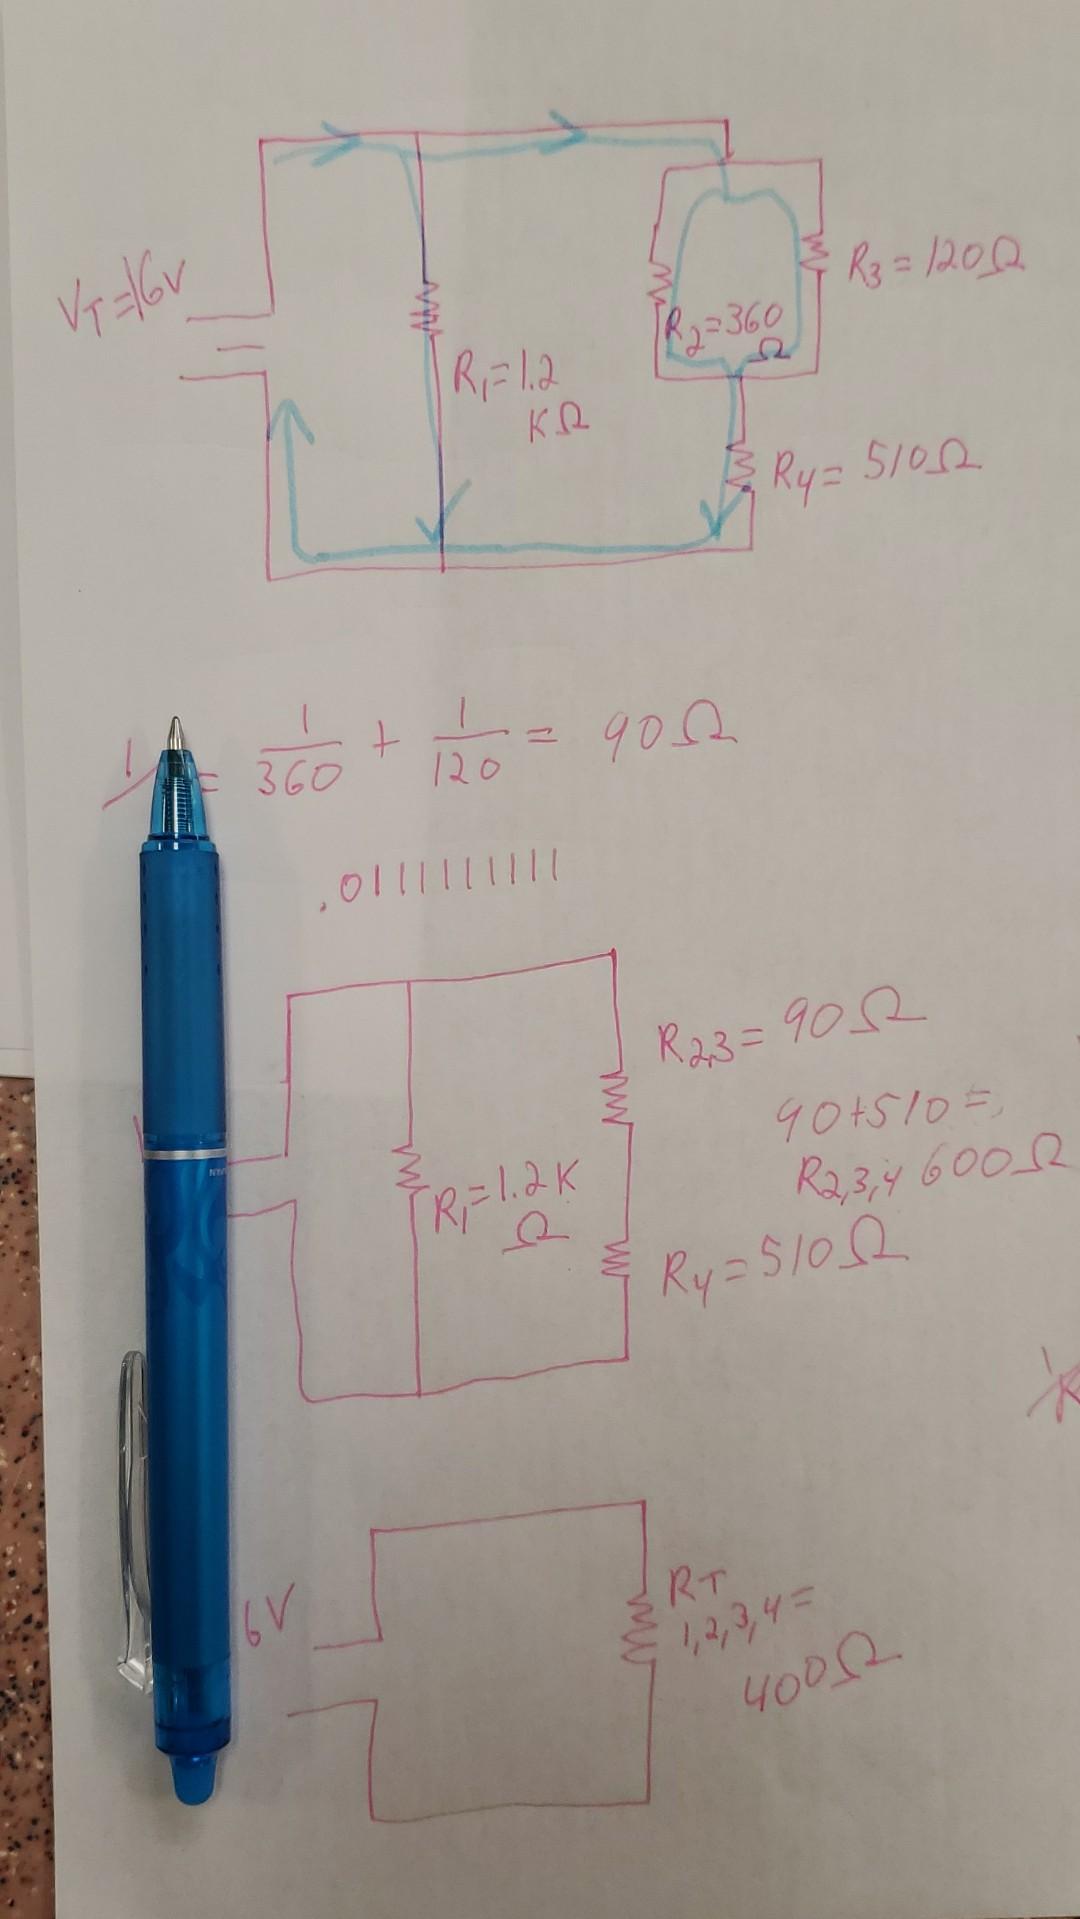 VT=16V
R3=120Ω
R2=360
Ω
R1=1.2
KΩ
R4= 510Ω
1/ = 1/360 + 1/120 = 90Ω
.01111111111
R2,3= 90Ω
90+510=
R2,3,4 600Ω
R1=1.2K
Ω
R4=510Ω
6V
RT
1,2,3,4=
400Ω